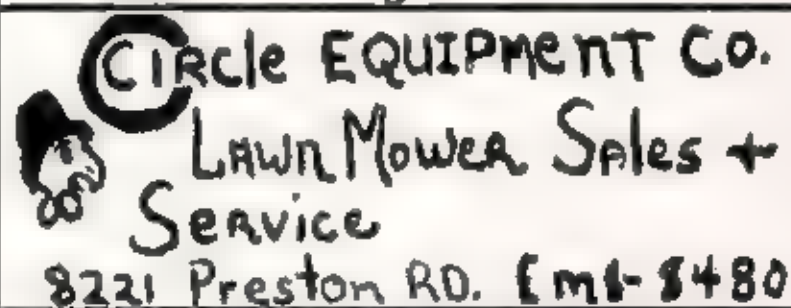 CIRcle EQUIPMENT CO.
LAWN MOWER SAles +
SERVICE
8221 Preston RD.